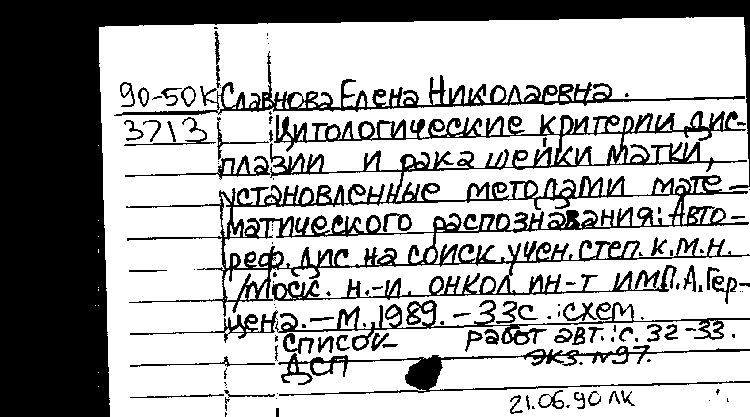 90-50К Славнова Елена Николаевна.
3713 Цитологические критерии дис-
плазии и рака шейки матки,
установленные методами мате-
матического распознавания: Авто-
реф. дис. на соиск. учен. степ. к.м.н.
/Моск. н.-и. онкол. ин-т им П.А. Гер-
цена. — М., 1989. — 33с. : схем.
Список работ авт.: с. 32-33.
ДСП Экз. №97.
21.06.90 ЛК